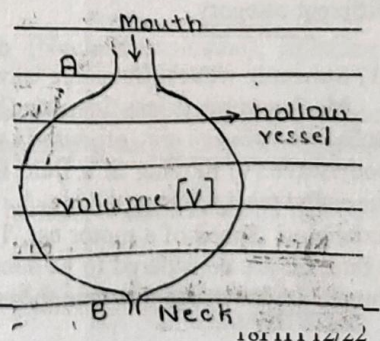 Mouth
A
hollow
vessel
volume [V]
B Neck